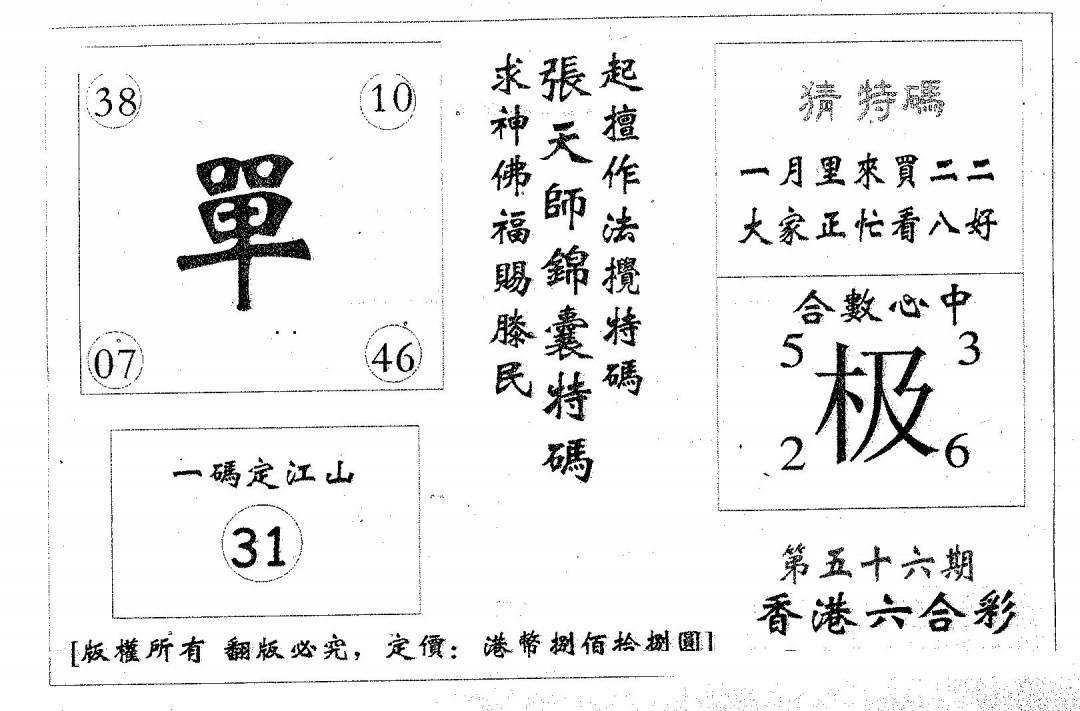 38
10
單
07
46
一碼定江山
31
起擅作法攪特碼
張天師錦囊特碼
求神佛福賜滕民
猜特碼
一月里來買二二
大家正忙看八好
合數心中
5
3
极
2
6
第五十六期
香港六合彩
[版權所有 翻版必究，定價：港幣捌佰拾捌圓]